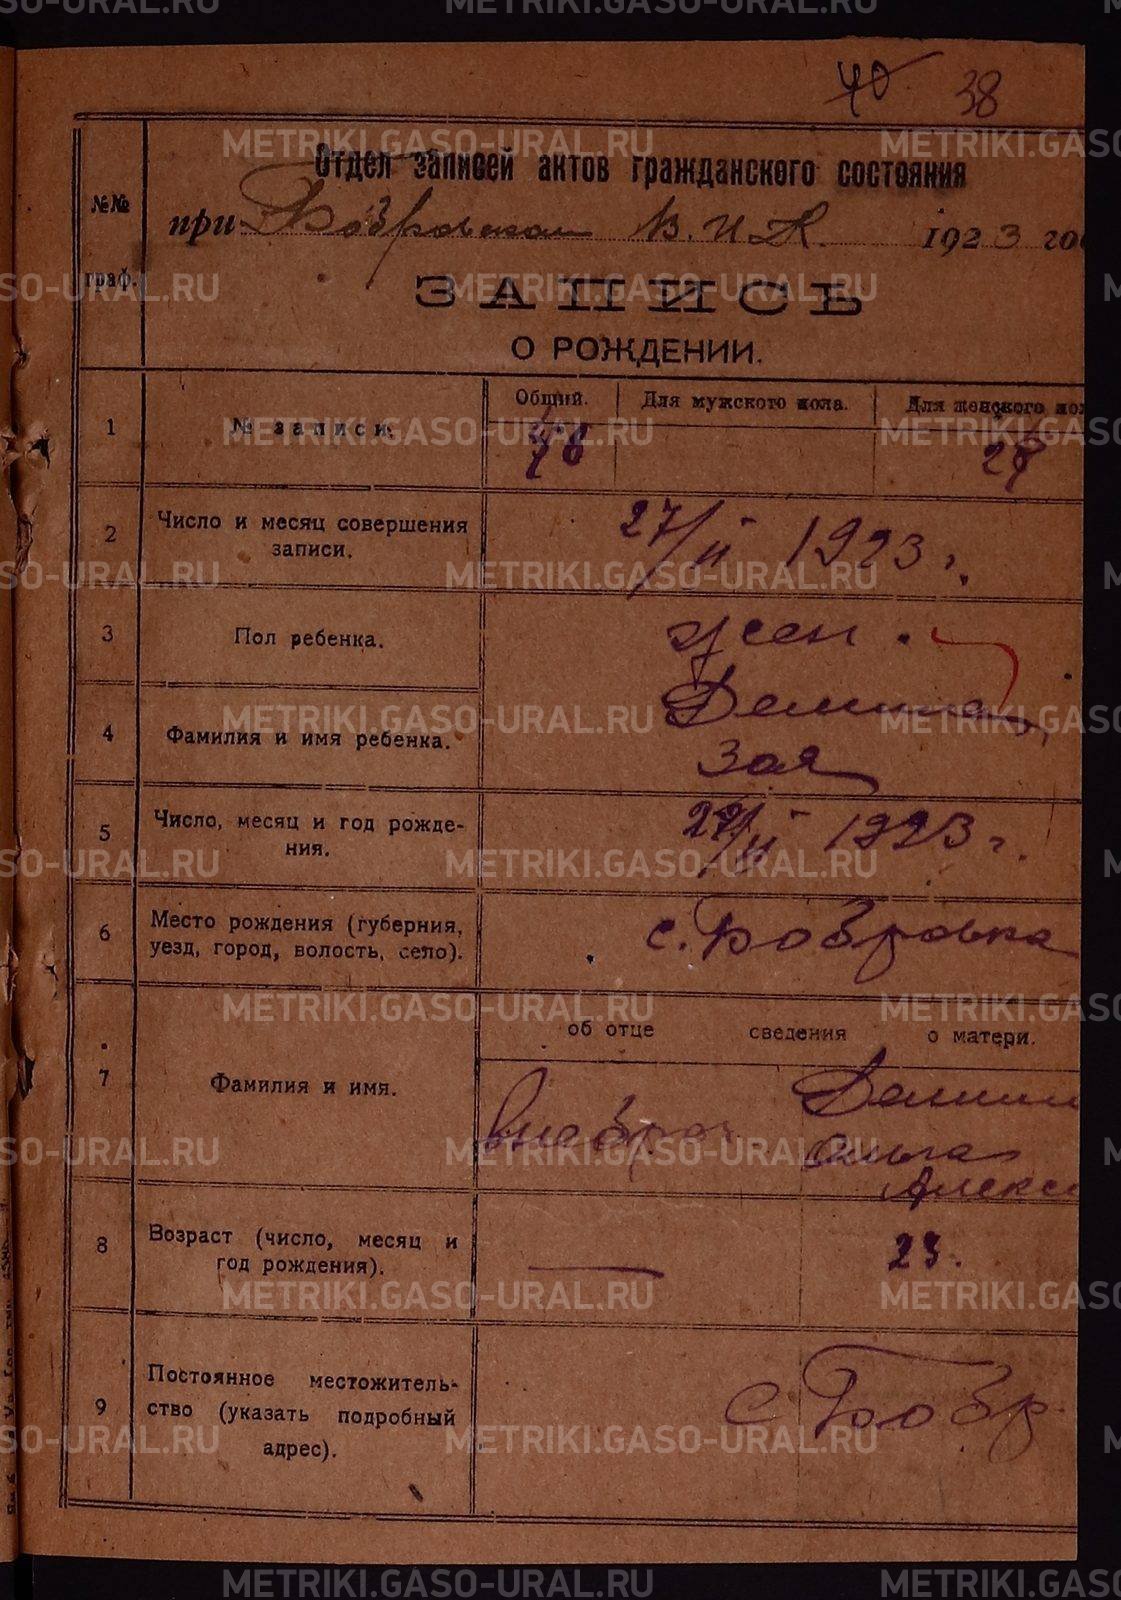 40 38
Отдел записей актов гражданского состояния
№№
граф.
при Бобровском В.И.К. 1923 го
ЗАПИСЬ
О РОЖДЕНИИ.
1 № записи. Общий. Для мужского пола. Для женского по
46
2 Число и месяц совершения
записи.
27/II 1923 г.
3 Пол ребенка. жен.
4 Фамилия и имя ребенка. Демина
Зоя
5 Число, месяц и год рожде-
ния.
1923 г.
6 Место рождения (губерния,
уезд, город, волость, село).
с. Бобровка
об отце сведения о матери.
7 Фамилия и имя. Внебрач Демин
Ольга
Алекс
8 Возраст (число, месяц и
год рождения).
— 23.
9 Постоянное местожитель-
ство (указать подробный
адрес).
с Бобр
METRIKI.GASO-URAL.RU